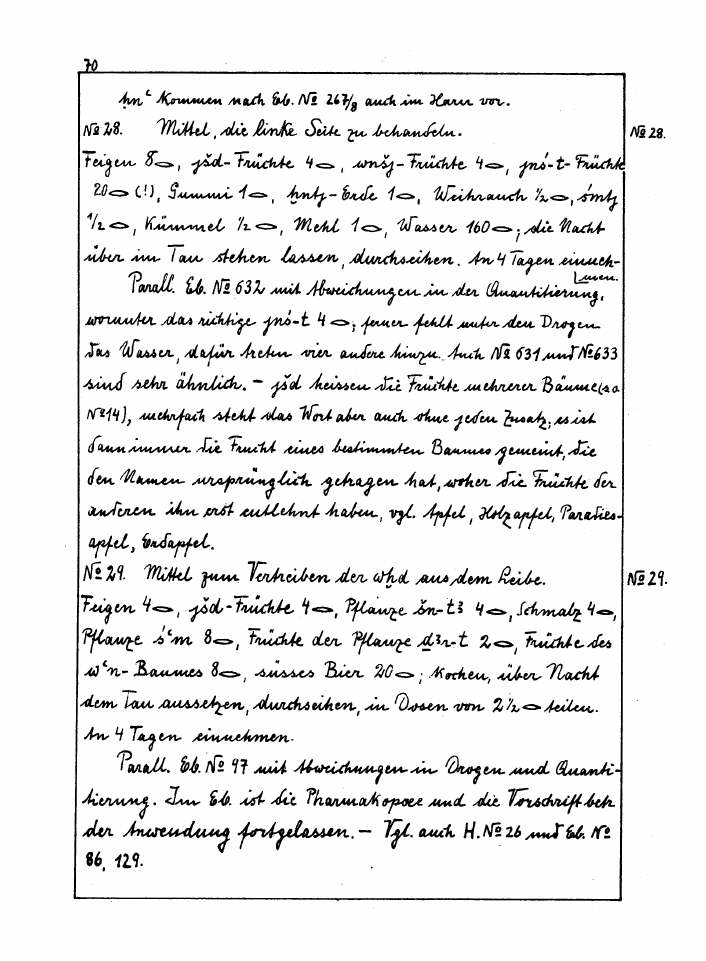 70
ḥnʿ kommen nach Eb. No 267/8 auch im Harn vor.
No 28. Mittel, die linke Seite zu behandeln. No 28.
Feigen 8⬭, jšd-Früchte 4⬭, wnšj-Früchte 4⬭, jnś-t-Früchte
20⬭ (!), Gummi 1⬭, ḥntj-Erde 1⬭, Weihrauch ½⬭, śmtj
½⬭, Kümmel ½⬭, Mehl 1⬭, Wasser 160⬭; die Nacht
über im Tau stehen lassen, durchseihen. An 4 Tagen einneh-
men.
Parall. Eb. No 632 mit Abweichungen in der Quantitierung,
worunter das richtige jnś-t 4⬭; ferner fehlt unter den Drogen
das Wasser, dafür treten vier andere hinzu. Auch No 631 und No 633
sind sehr ähnlich. – jšd heissen die Früchte mehrerer Bäume (s.o.
No 14), mehrfach steht das Wort aber auch ohne jeden Zusatz; es ist
dann immer die Frucht eines bestimmten Baumes gemeint, die
den Namen ursprünglich getragen hat, woher die Früchte der
anderen ihn erst entlehnt haben, vgl. Apfel, Holzapfel, Paradies-
apfel, Erdapfel.
No 29. Mittel zum Vertreiben der wḫd aus dem Leibe. No 29.
Feigen 4⬭, jšd-Früchte 4⬭, Pflanze šn-tꜣ 4⬭, Schmalz 4⬭,
Pflanze śʿm 8⬭, Früchte der Pflanze ḏꜣr-t 2⬭, Früchte des
wʿn-Baumes 8⬭, süsses Bier 20⬭; kochen, über Nacht
dem Tau aussetzen, durchseihen, in Dosen von 2½⬭ teilen.
An 4 Tagen einnehmen.
Parall. Eb. No 97 mit Abweichungen in Drogen und Quanti-
tierung. Im Eb. ist die Pharmakopoee und die Vorschrift betr.
der Anwendung fortgelassen. – Vgl. auch H. No 26 und Eb. No
86, 129.